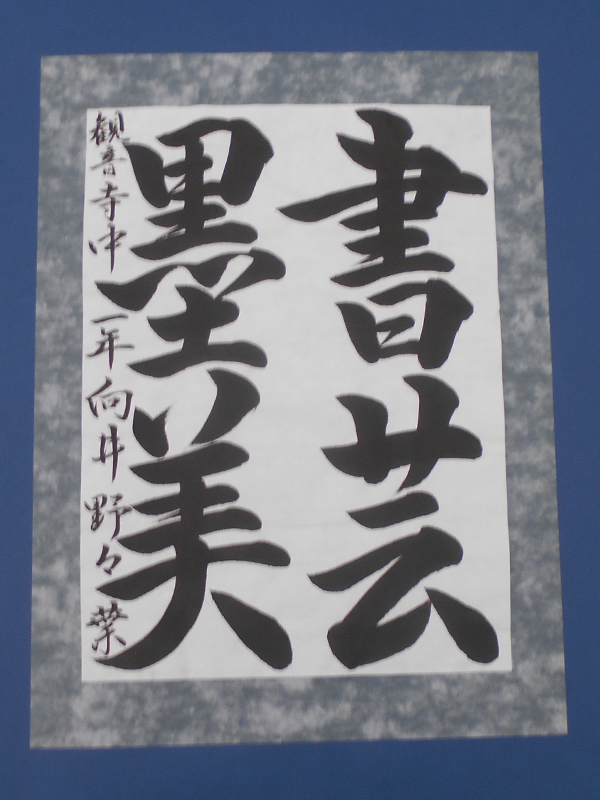 書芸
墨美
観音寺中一年向井野々葉